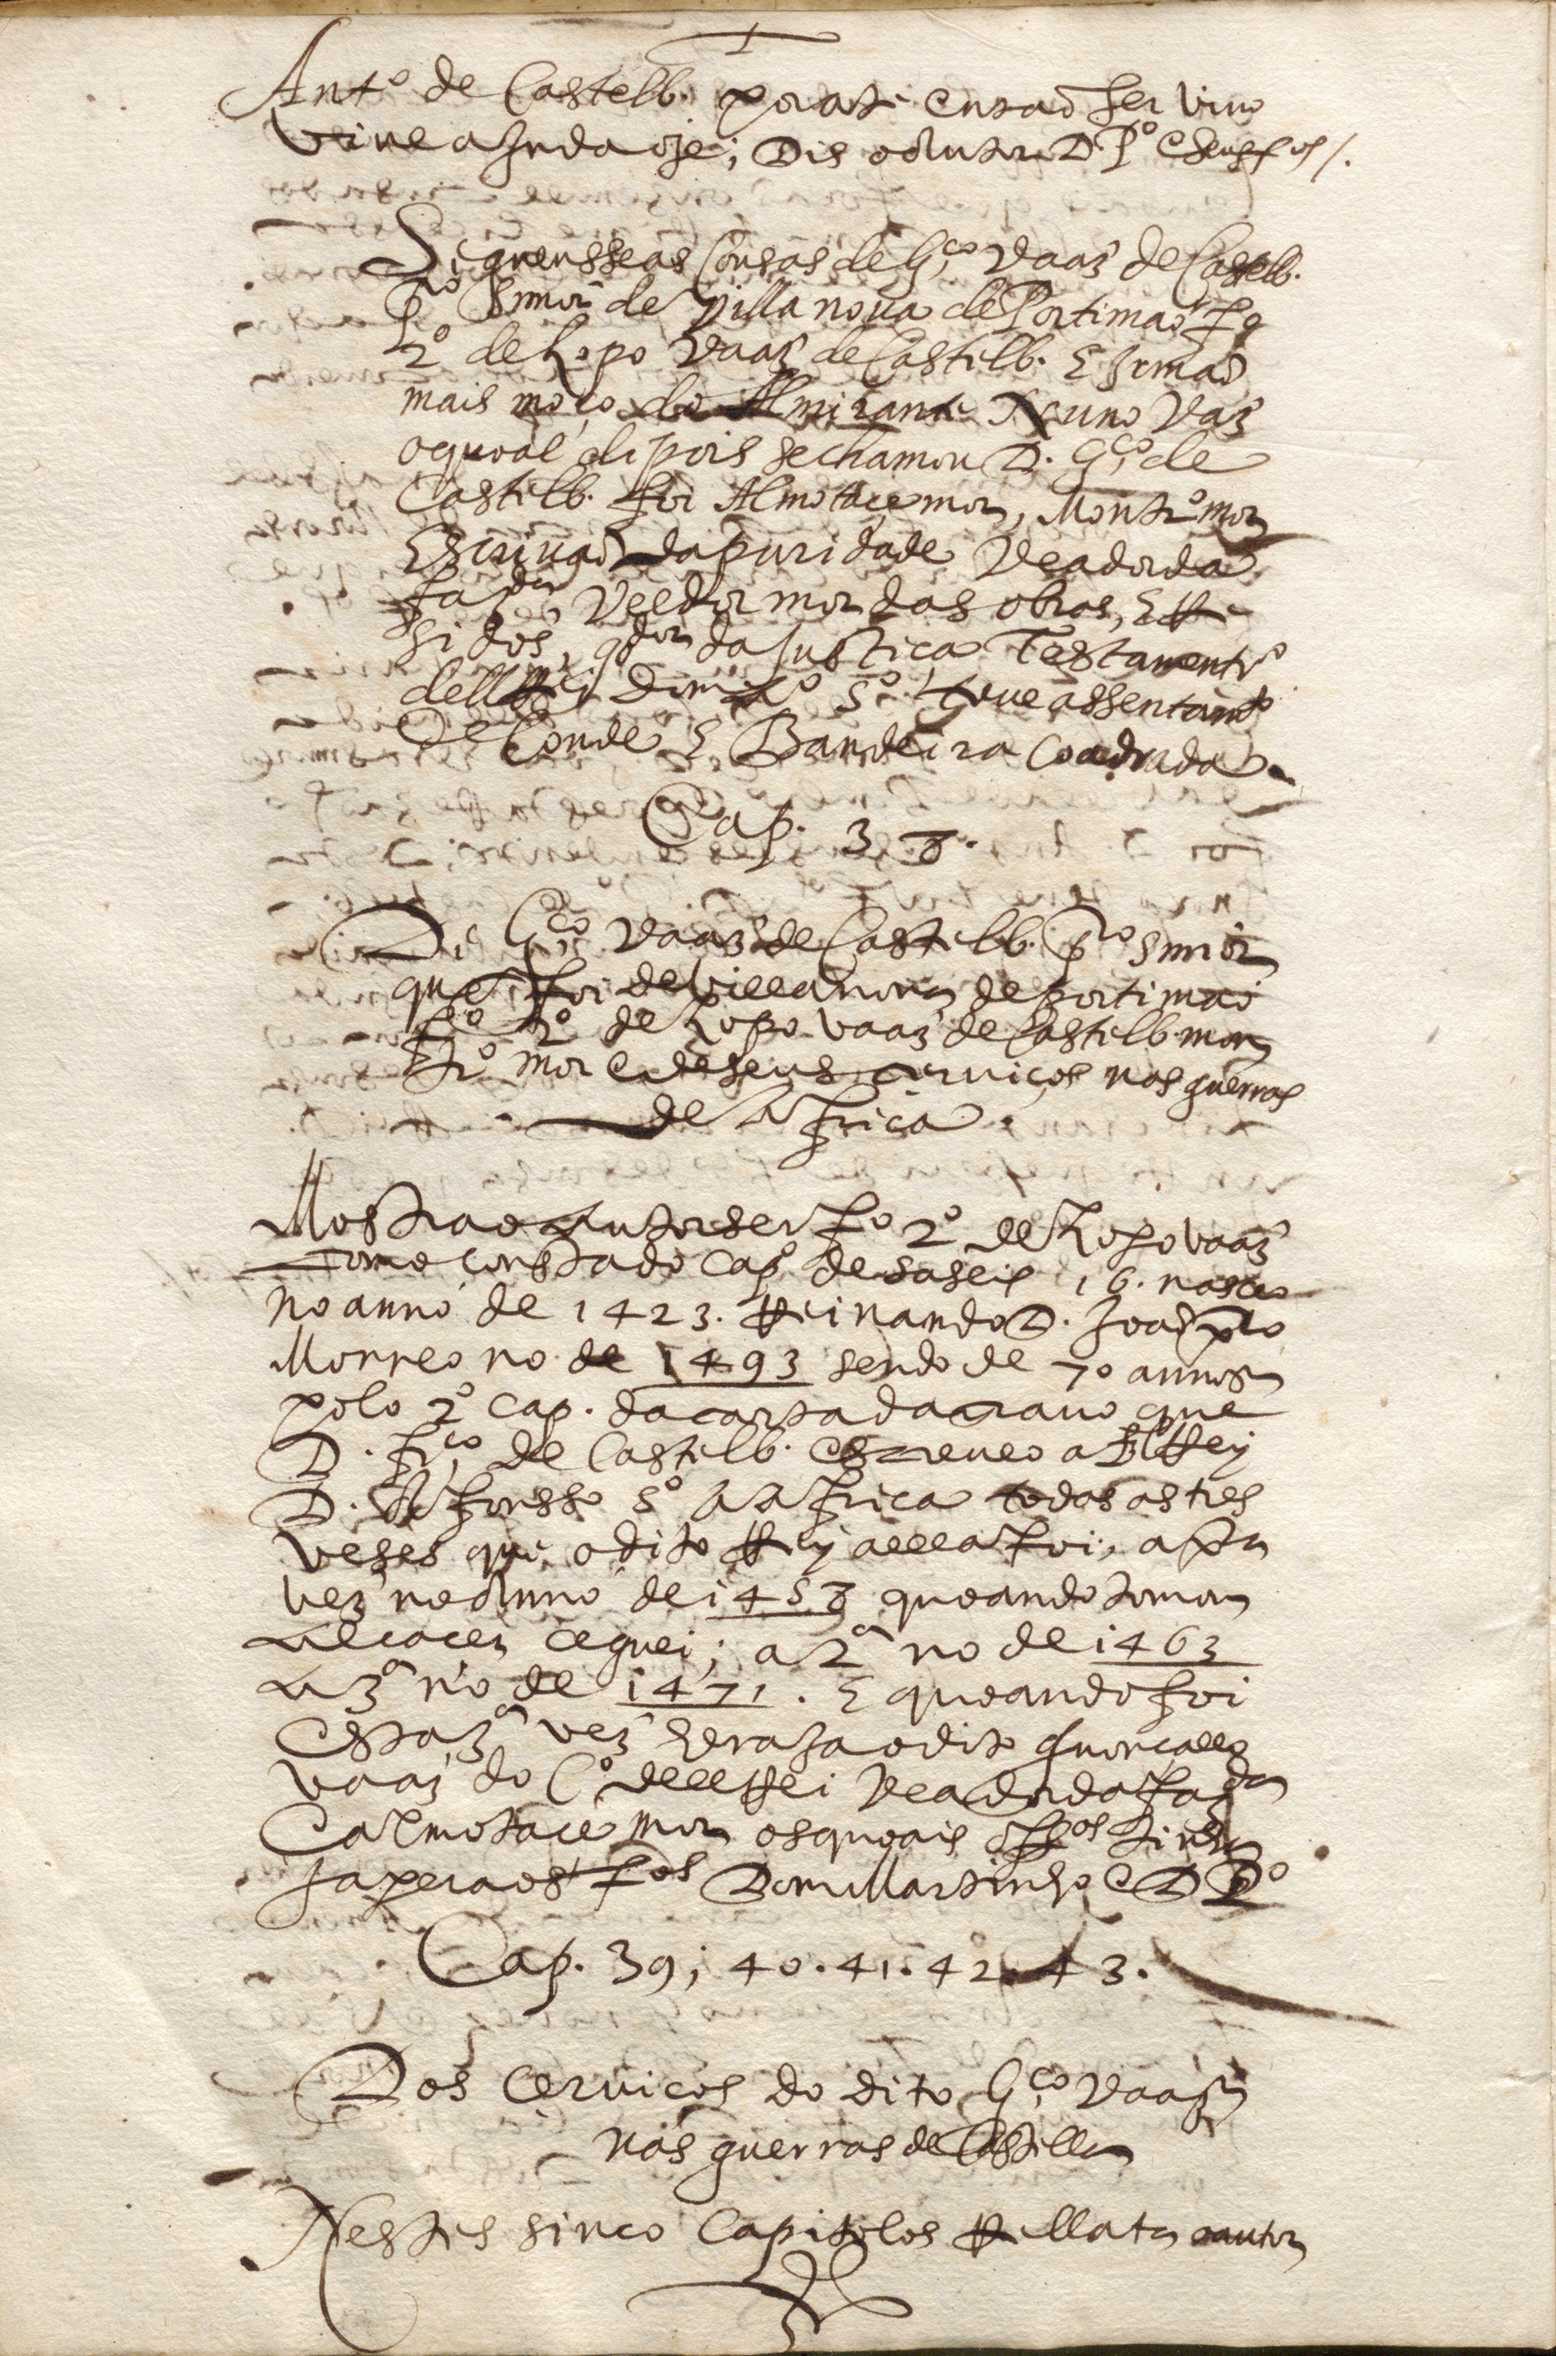 Ant.º de Castelb. por ate entaõ ser vivo
vive ajnda oje; Dis o Autor D. P.º e seus f.ºs /.
Siguensseas Cousas de G.ço Vaaz de Castelb.
p.ro S.mor de villa nova de Portimaõ f.º
2º de Lopo Vaaz de Castelb. E Irmaõ
mais moço do Almirante Nuno Vaz
oqual dipois se chamou D. G.ço de
Castelb. foi Almotace mor, Montr.º mor
Escrivaõ da puridade Veador da
faz.da Veedor mor das obras, E Re
sidos, g.dor da Justiça Testamentr.º
dell Rei Dom A.º 5º. teve assentam.to
De Conde E Bandeira Coadrada.
Cap. 38.
De G.ço Vaaz de Castelb. P.ro S.mor
que foi de Villa nova de portimaõ
f.º 2º de Lopo vaaz de Castelb. mon
tr.º mor e de seus cerviços nas guerras
de Africa.
Mostra o Autor ser f.º 2º de Lopo vaaz
como consta do Cap. desaseis 16. nasceo
no anno de 1423. Reinando D. Joaõ p.ro
Morreo no de 1493 sendo de 70 annos
polo 2º cap. da carta da cravo que
D. Fr.co de Castelb. escreveo a El Rey
D. Afonsso 5º A Africa todas as tres
veses que o dito Rey alla foi, a pr.a
vez no Anno de 1458 quoando tomou
Alcacer ceguei; a 2ª no de 1463
A 3ª no de 1471. E quoando foi
Esta 3ª vez hera ja o dito Guonçallo
vaaz do C.º dell Rei Veador da faz.da
E almotace mor os quoais off.os tinha
ja pera os f.os Dom Martinho E D. P.º
Cap. 39; 40. 41. 42. 43.
Dos Cerviços do dito G.ço Vaaz
nas guerras de Castella
Nestes sinco Capitolos Rellata o autor